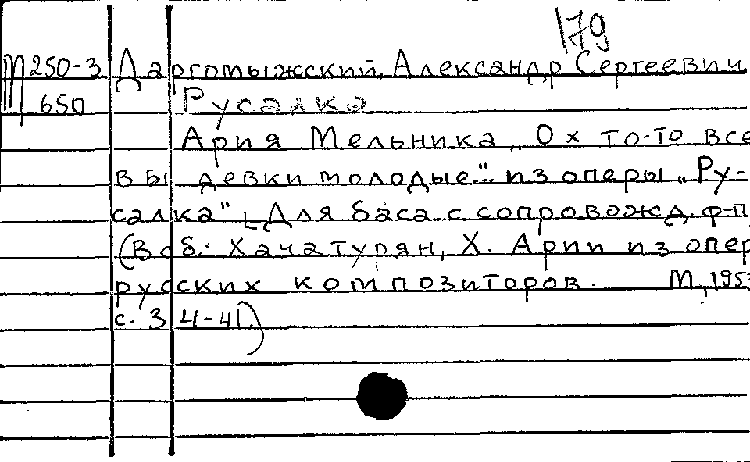 179
М250-3 Даргомыжский, Александр Сергеевич
650 Русалка
Ария Мельника „Ох то-то все
вы девки молодые..." из оперы „Ру-
салка" [Для баса с сопровожд. ф-п
(В сб.: Хачатурян, Х. Арии из опер
русских композиторов. М., 195
с. 34-41.)